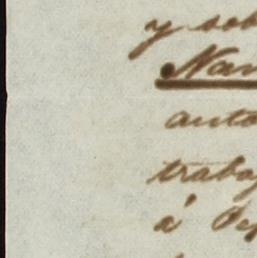 y seb
Nan
auto
trabaj
á Pep